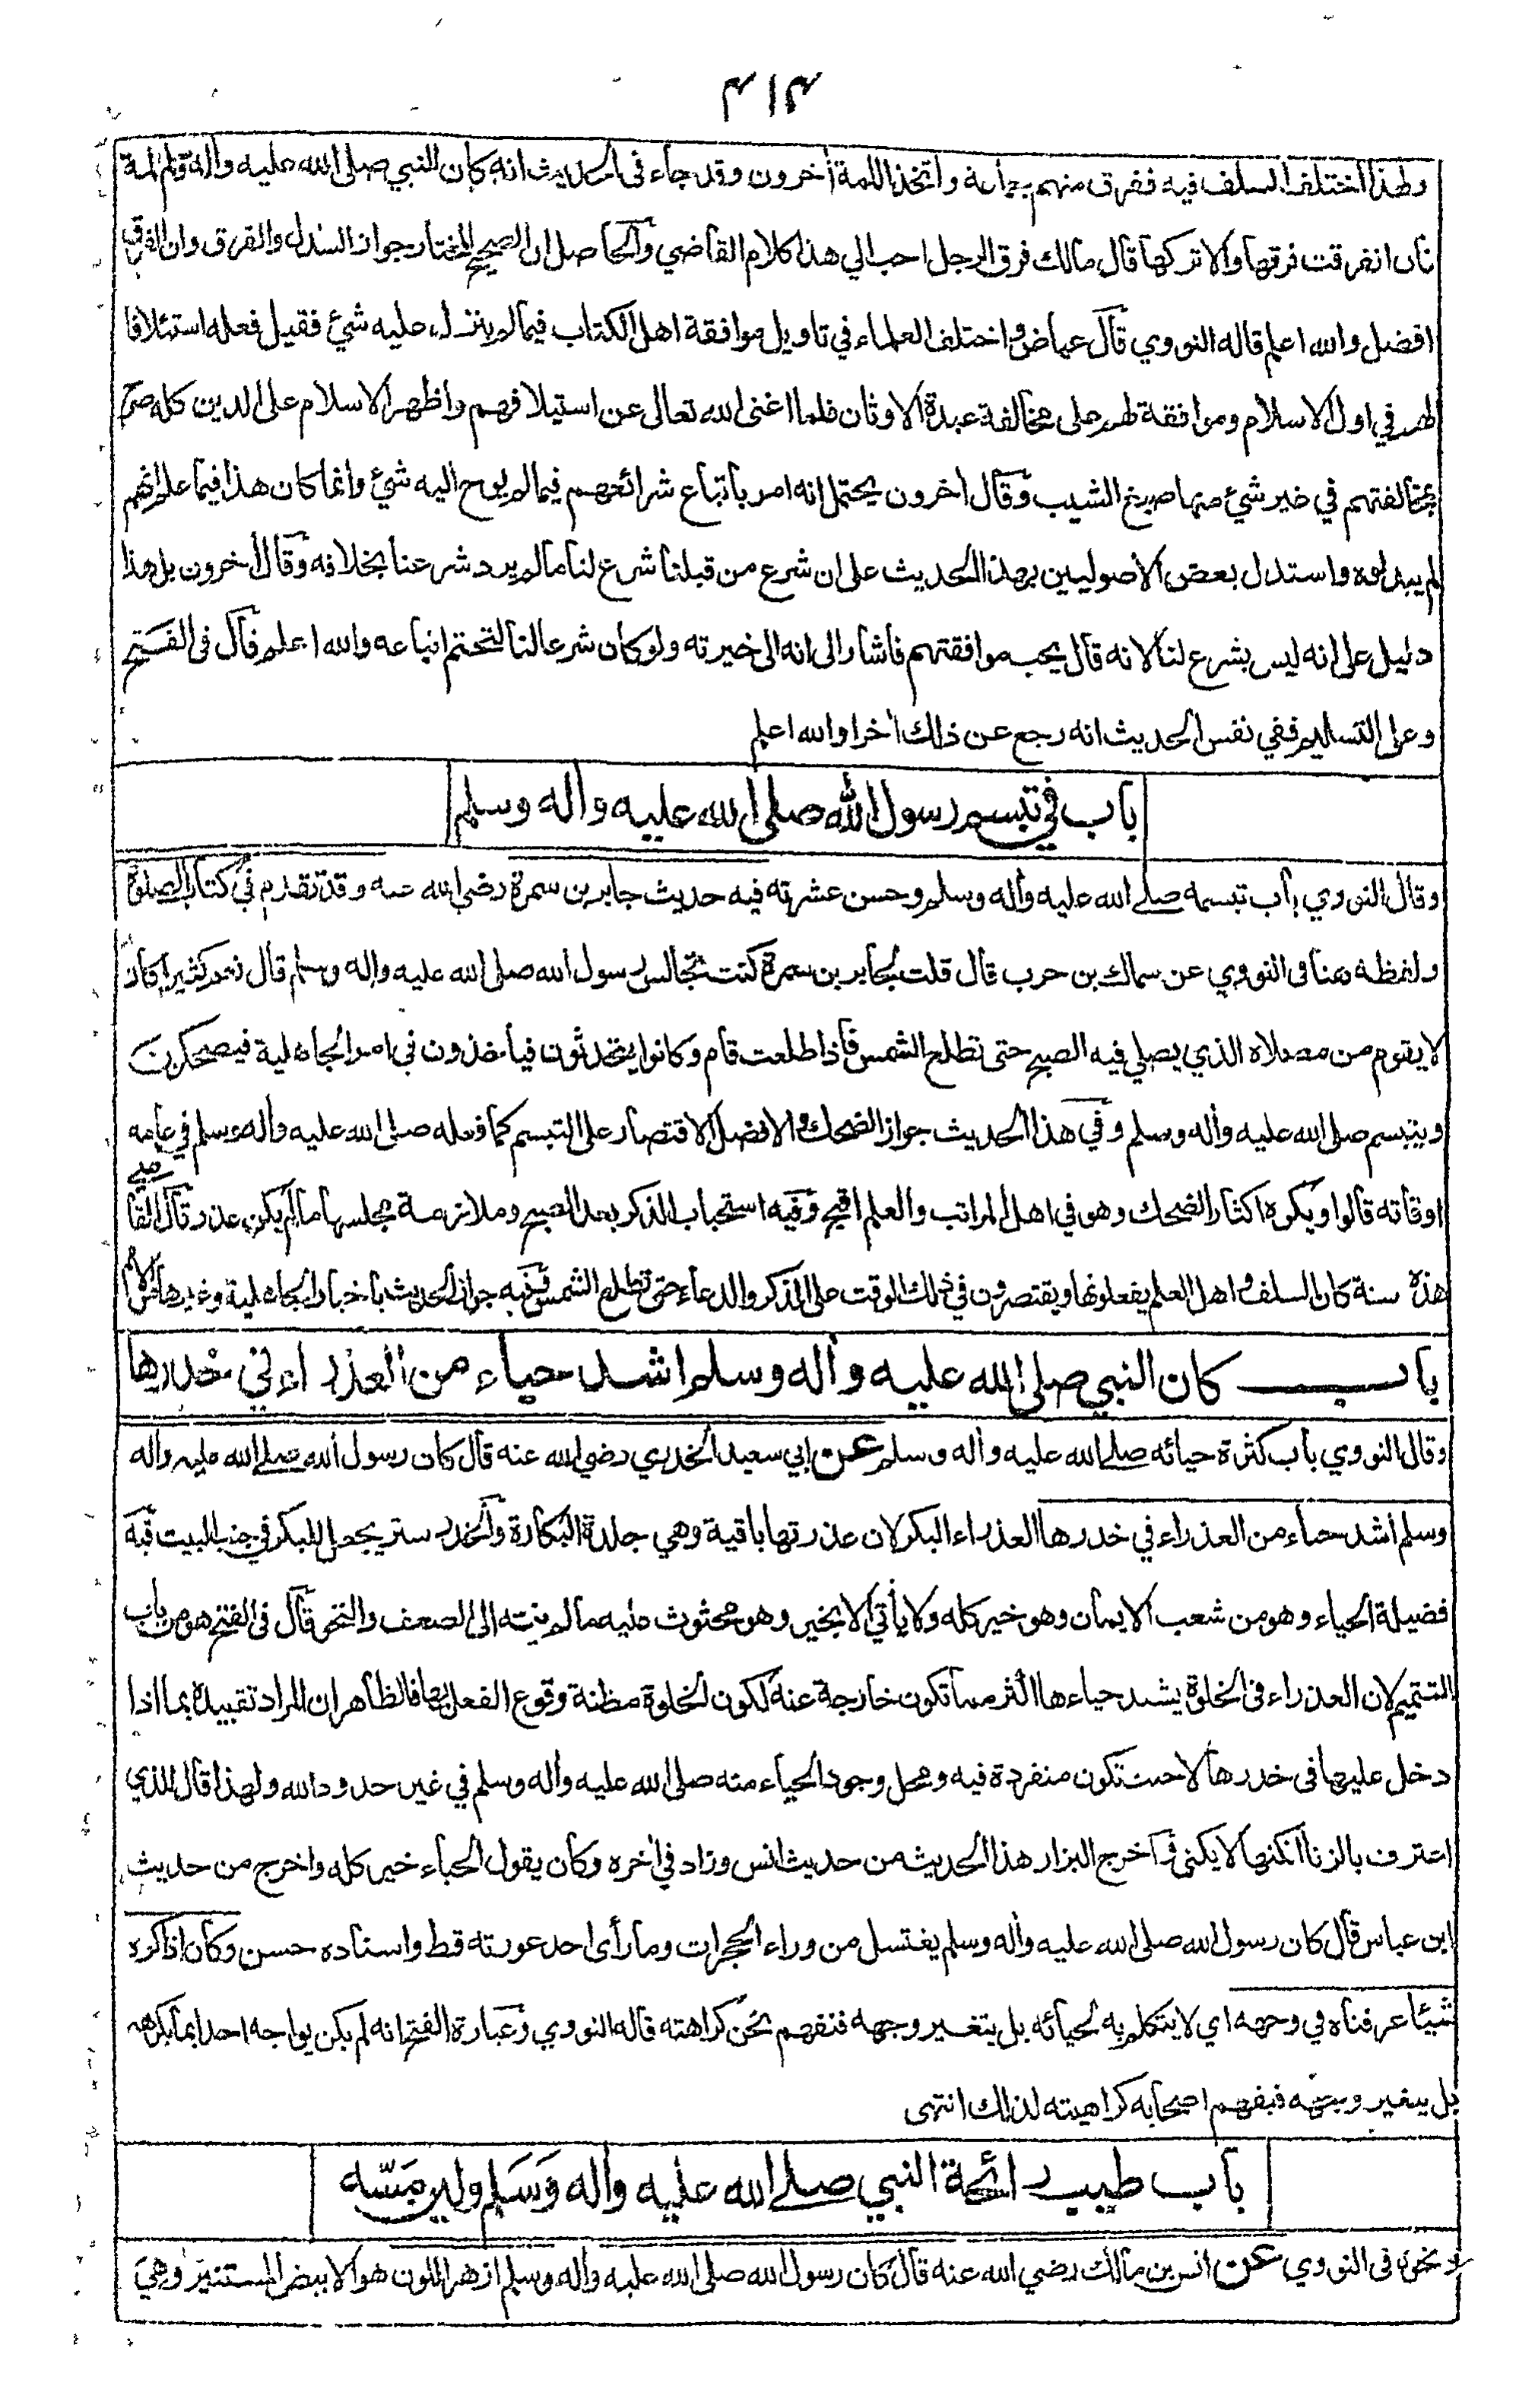 ولهذا اختلف السلف فيه ففرق منهم جماعة واتخذ اللمة أخرون وقد جاء في الحديث انه كان للنبي صلى الله عليه واله وسلم لمة
فان انفرقت فرقها والا تركها قال مالك فرق الرجل احب الي هذا كلام القاضي والحاصل ان الصحيح المختار جواز السدل والفرق وان الفرق
افضل والله اعلم قاله النووي قال عياض واختلف العلماء في تاويل موافقة اهل الكتاب فيما لم ينزل عليه شئ فقيل فعله استئلافا
لهم في اول الاسلام وموافقة لهم على مخالفة عبدة الاوثان فلما اغنى الله تعالى عن استيلافهم واظهر الاسلام على الدين كله صرح
بمخالفتهم في غير شئ منها صبغ الشيب وقال أخرون يحتمل انه امر باتباع شرائعهم فيما لم يوح اليه شئ وانما كان هذا فيما علم انهم
لم يبدلوه واستدل بعض الأصوليين بهذا الحديث على ان شرع من قبلنا شرع لنا مالم يرد شرعنا بخلافه وقال أخرون بل هذا
دليل على انه ليس بشرع لنا لانه قال يحب موافقتهم فأشار الى انه الى خيرته ولو كان شرعا لنا لتحتم اتباعه والله اعلم قال في الفتح
وعلى التسليم ففي نفس الحديث انه رجع عن ذلك أخرا والله اعلم
باب في تبسم رسول الله صلى الله عليه واله وسلم
وقال النووي باب تبسمه صلى الله عليه وأله وسلم وحسن عشرته فيه حديث جابر بن سمرة رضي الله عنه وقد تقدم في كتاب الصلوة
ولفظه هنا في النووي عن سماك بن حرب قال قلت لجابر بن سمرة كنت تجالس رسول الله صلى الله عليه واله وسلم قال نعم كثيرا كان
لا يقوم من مصلاه الذي يصلي فيه الصبح حتى تطلع الشمس فأذا طلعت قام وكانوا يتحدثون فيأخذون في امر الجاهلية فيضحكون
ويتبسم صلى الله عليه وأله وسلم وفي هذا الحديث جواز الضحك والافضل الاقتصار على التبسم كما فعله صلى الله عليه وأله وسلم في عامه
اوقاته قالوا ويكره اكثار الضحك وهو في اهل المراتب والعلم اقبح وفيه استحباب الذكر بعد الصبح وملازمة مجلسها مالم يكن عذر قال القاضي
هذه سنة كان السلف واهل العلم يفعلونها ويقتصرون في ذلك الوقت على الذكر والدعاء حتى تطلع الشمس وفيه جواز الحديث بأخبار الجاهلية وغيرها من الأمم
باب كان النبي صلى الله عليه وأله وسلم اشد حياء من العذراء في خدرها
وقال النووي باب كثرة حيائه صلى الله عليه وأله وسلم عن ابي سعيد الخدري رضي الله عنه قال كان رسول الله صلى الله عليه وأله
وسلم أشد حياء من العذراء في خدرها العذراء البكر لان عذرتها باقية وهي جلدة البكارة والخدر ستر يجعل للبكر في جنب البيت فيه
فضيلة الحياء وهو من شعب الايمان وهو خير كله ولا يأتي الا بخير وهو محثوث عليه مالم ينته الى الضعف والنخو قال في الفتح هو من باب
التتميم لان العذراء في الخلوة يشتد حياءها اكثر مما تكون خارجة عنه لكون الخلوة مظنة وقوع الفعل بها فالظاهر ان المراد تقييده بما اذا
دخل عليها في خدرها لا حيث تكون منفردة فيه ومحل وجود الحياء منه صلى الله عليه وأله وسلم في غير حدود الله ولهذا قال للذي
اعترف بالزنا انكتها لا يكنى وأخرج البزار هذا الحديث من حديث انس وزاد في أخره وكأن يقول الحياء خير كله واخرج من حديث
ابن عباس قال كان رسول الله صلى الله عليه وأله وسلم يغتسل من وراء الحجرات وما رأى احد عورته قط واسناده حسن وكان اذا كره
شيئا عرفناه في وجهه اي لا يتكلم به لحيائه بل يتغير وجهه فنفهم نحن كراهته قاله النووي وعبارة الفتح انه لم يكن يواجه احدا بما يكرهه
بل يتغير وجهه فيفهم اصحابه كراهيته لذلك انتهى
باب طيب رائحة النبي صلى الله عليه وأله وسلم ولين مسه
ونحوه في النووي عن انس بن مالك رضي الله عنه قال كان رسول الله صلى الله عليه وأله وسلم ازهر اللون هو الابيض المستنير وهي